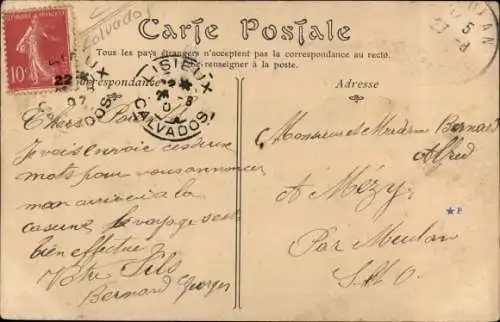 Carte Postale
Tous les pays étrangers n'acceptent pas la correspondance au recto.
renseigner à la poste.
Correspondance
Adresse
Calvados
10
LISIEUX
CALVADOS
Chers
Je vais envoie ces deux
mots pour vous annoncer
mon arrivée à la
caserne le voyage s'est
bien effectué
Votre Fils
Bernard Georges
Monsieur et Madame Bernard
Alfred
A Mézy
Par Meulan
S. & O.
P